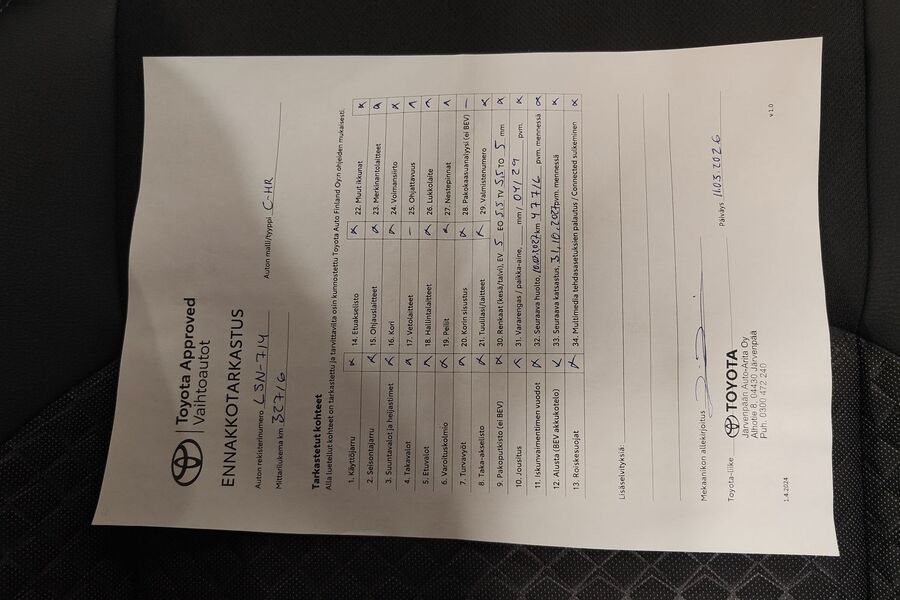 Toyota Approved
Vaihtoautot
ENNAKKOTARKASTUS
Auton rekisterinumero LSN-714 Auton malli/tyyppi C-HR
Mittarilukema km 32716
Tarkastetut kohteet
Alla luetellut kohteet on tarkastettu ja tarvittavilta osin kunnostettu Toyota Auto Finland Oy:n ohjeiden mukaisesti.
1. Käyttöjarru 14. Etuakselisto 22. Muut ikkunat
2. Seisontajarru 15. Ohjauslaitteet 23. Merkinantolaitteet
3. Suuntavalot ja heijastimet 16. Kori 24. Voimansiirto
4. Takavalot 17. Vetolaitteet – 25. Ohjattavuus
5. Etuvalot 18. Hallintalaitteet 26. Lukkolaite
6. Varoituskolmio 19. Peilit 27. Nestepinnat
7. Turvavyöt 20. Korin sisustus 28. Pakokaasuanalyysi (ei BEV) –
8. Taka-akselisto 21. Tuulilasi/laitteet 29. Valmistenumero
9. Pakoputkisto (ei BEV) 30. Renkaat (kesä/talvi), EV 5 EO 5,5 TV 5,5 TO 5 mm
10. Jousitus 31. Vararengas / paikka-aine, mm, 04/29 pvm.
11. Iskunvaimentimen vuodot 32. Seuraava huolto, km 47716 pvm. mennessä
12. Alusta (BEV akkukotelo) 33. Seuraava katsastus, 31.10.2027 pvm. mennessä
13. Roiskesuojat 34. Multimedia tehdasasetuksien palautus / Connected sulkeminen
Lisäselvityksiä:
Mekaanikon allekirjoitus Päiväys 11.03.2026
Toyota-liike TOYOTA
Järvenpään Auto-Arita Oy
Alhotie 8, 04430 Järvenpää
Puh. 0300 472 240
1.4.2024 v 1.0